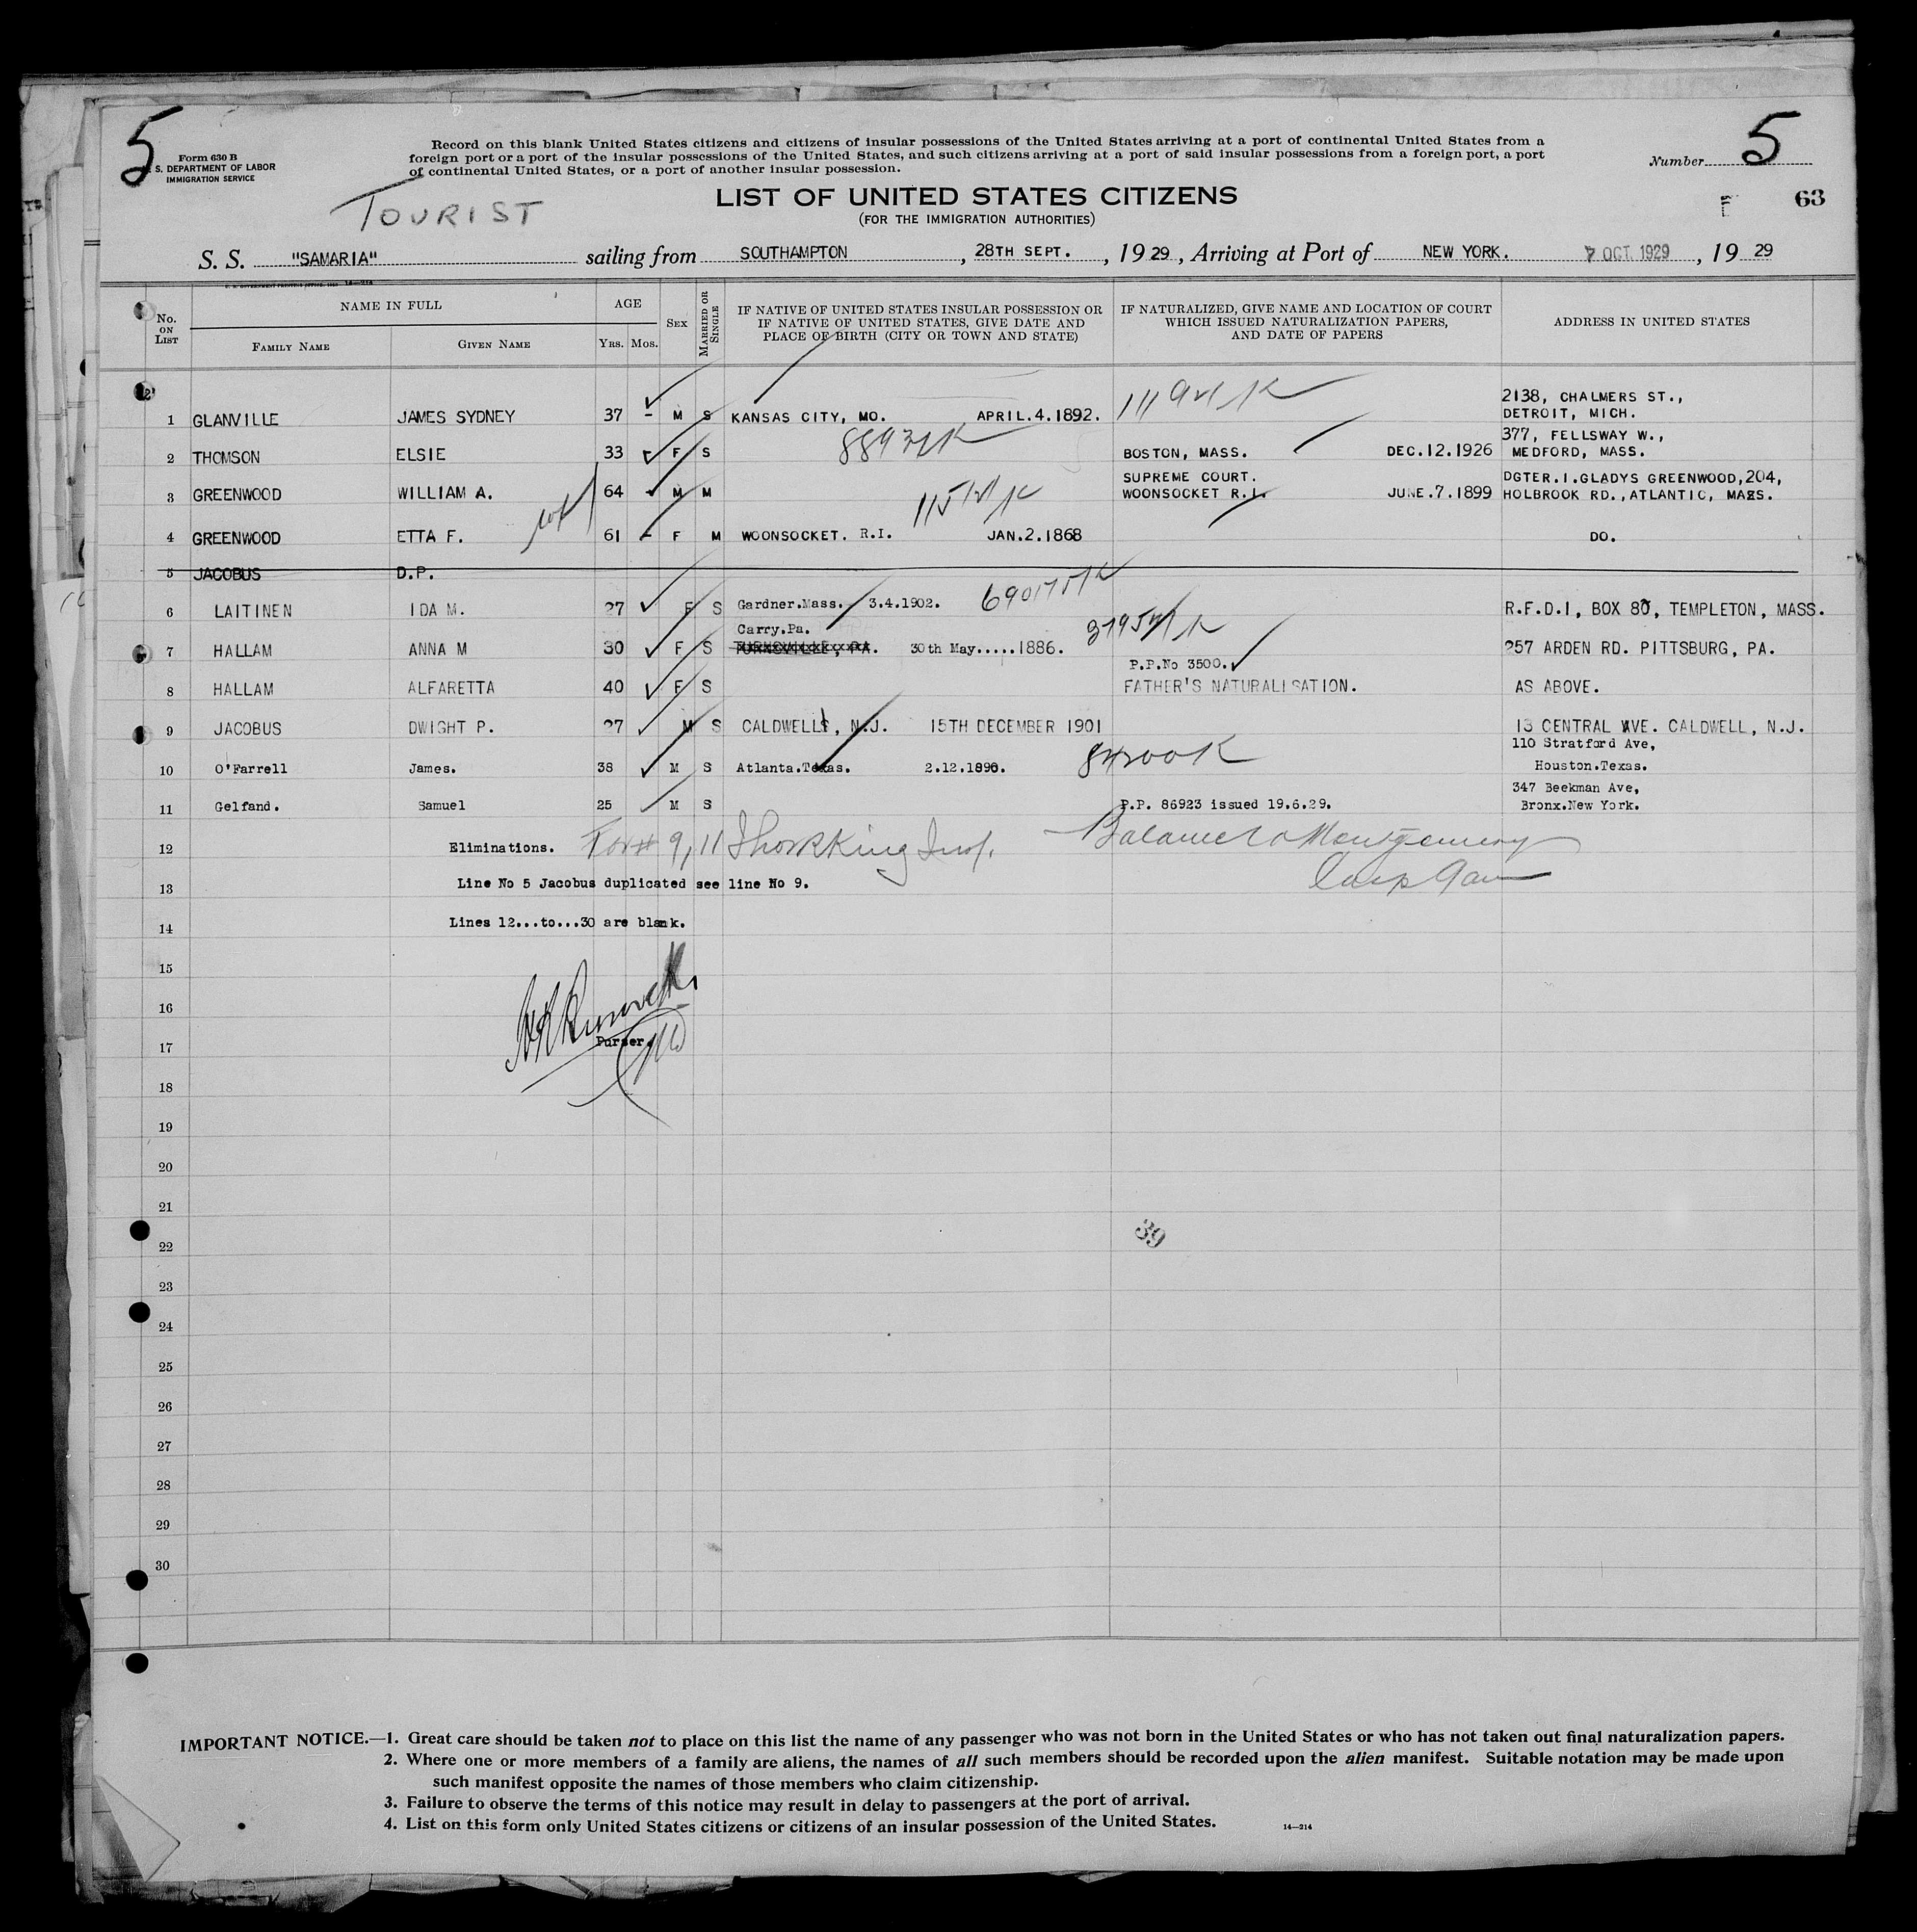 5
Form 630 B
S. DEPARTMENT OF LABOR
IMMIGRATION SERVICE
Record on this blank United States citizens and citizens of insular possessions of the United States arriving at a port of continental United States from a
foreign port or a port of the insular possessions of the United States, and such citizens arriving at a port of said insular possessions from a foreign port, a port
of continental United States, or a port of another insular possession.
Number 5
LIST OF UNITED STATES CITIZENS
(FOR THE IMMIGRATION AUTHORITIES)
63
TOURIST
S. S. "SAMARIA" sailing from SOUTHAMPTON, 28TH SEPT., 1929, Arriving at Port of NEW YORK. 7 OCT 1929, 1929
No. ON LIST
NAME IN FULL
FAMILY NAME GIVEN NAME
AGE
YRS. MOS.
SEX
MARRIED OR SINGLE
IF NATIVE OF UNITED STATES INSULAR POSSESSION OR
IF NATIVE OF UNITED STATES, GIVE DATE AND
PLACE OF BIRTH (CITY OR TOWN AND STATE)
IF NATURALIZED, GIVE NAME AND LOCATION OF COURT
WHICH ISSUED NATURALIZATION PAPERS,
AND DATE OF PAPERS
ADDRESS IN UNITED STATES
2138, CHALMERS ST.,
1 GLANVILLE JAMES SYDNEY 37 - M S KANSAS CITY, MO. APRIL.4.1892. DETROIT, MICH.
377, FELLSWAY W.,
2 THOMSON ELSIE 33 - F S BOSTON, MASS. DEC.12.1926 MEDFORD, MASS.
SUPREME COURT. DGTER.I.GLADYS GREENWOOD,204,
3 GREENWOOD WILLIAM A. 64 - M M WOONSOCKET R.I. JUNE.7.1899 HOLBROOK RD.,ATLANTIC, MASS.
4 GREENWOOD ETTA F. 61 - F M WOONSOCKET. R.I. JAN.2.1868 DO.
5 JACOBUS D.P.
6 LAITINEN IDA M. 27 F S Gardner.Mass. 3.4.1902. R.F.D.1, BOX 80, TEMPLETON, MASS.
Carry.Pa.
7 HALLAM ANNA M 30 F S 30th May.....1886. 257 ARDEN RD. PITTSBURG, PA.
P.P.No 3500.
8 HALLAM ALFARETTA 40 F S FATHER'S NATURALISATION. AS ABOVE.
9 JACOBUS DWIGHT P. 27 M S CALDWELL, N.J. 15TH DECEMBER 1901 13 CENTRAL AVE. CALDWELL, N.J.
110 Stratford Ave,
10 O'Farrell James. 38 M S Atlanta.Texas. 2.12.1890. 84200K Houston.Texas.
347 Beekman Ave,
11 Gelfand. Samuel 25 M S P.P. 86923 issued 19.6.29. Bronx.New York.
12 Eliminations.
13 Line No 5 Jacobus duplicated see line No 9.
14 Lines 12...to...30 are blank.
15
16
17 Purser.
18
19
20
21
39
22
23
24
25
26
27
28
29
30
IMPORTANT NOTICE.—1. Great care should be taken not to place on this list the name of any passenger who was not born in the United States or who has not taken out final naturalization papers.
2. Where one or more members of a family are aliens, the names of all such members should be recorded upon the alien manifest. Suitable notation may be made upon
such manifest opposite the names of those members who claim citizenship.
3. Failure to observe the terms of this notice may result in delay to passengers at the port of arrival.
4. List on this form only United States citizens or citizens of an insular possession of the United States.
14—214